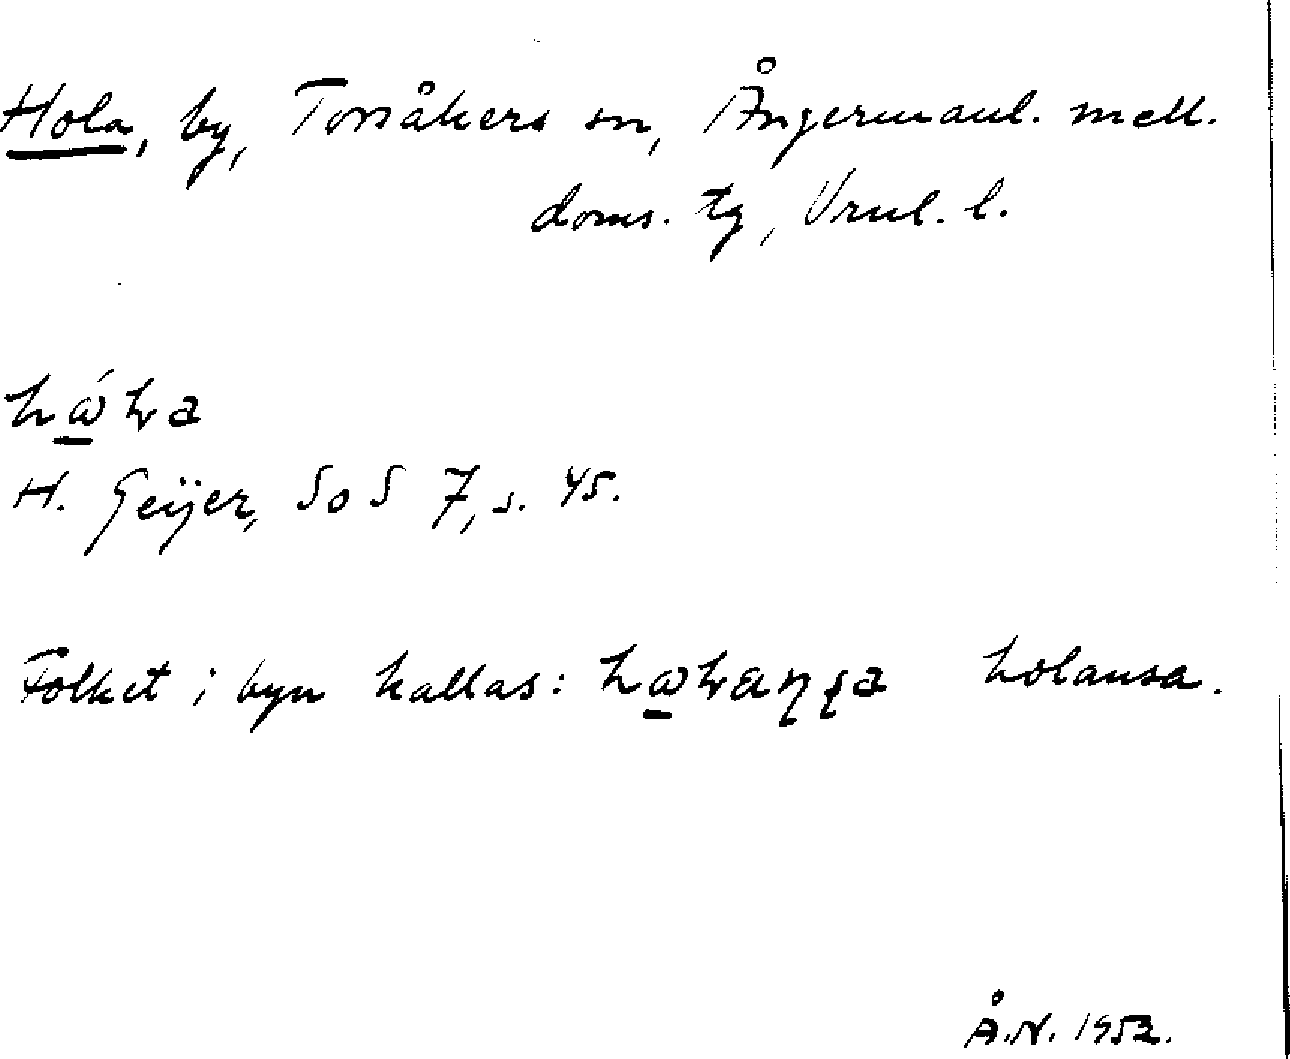 Hola, by, Torsåkers sn, Ångermanl. mell.
doms. tg, Vnl. l.
H. Geijer, SoS 7, s. 45.
Folket i byn kallas: holansa.
Å.N. 1952.